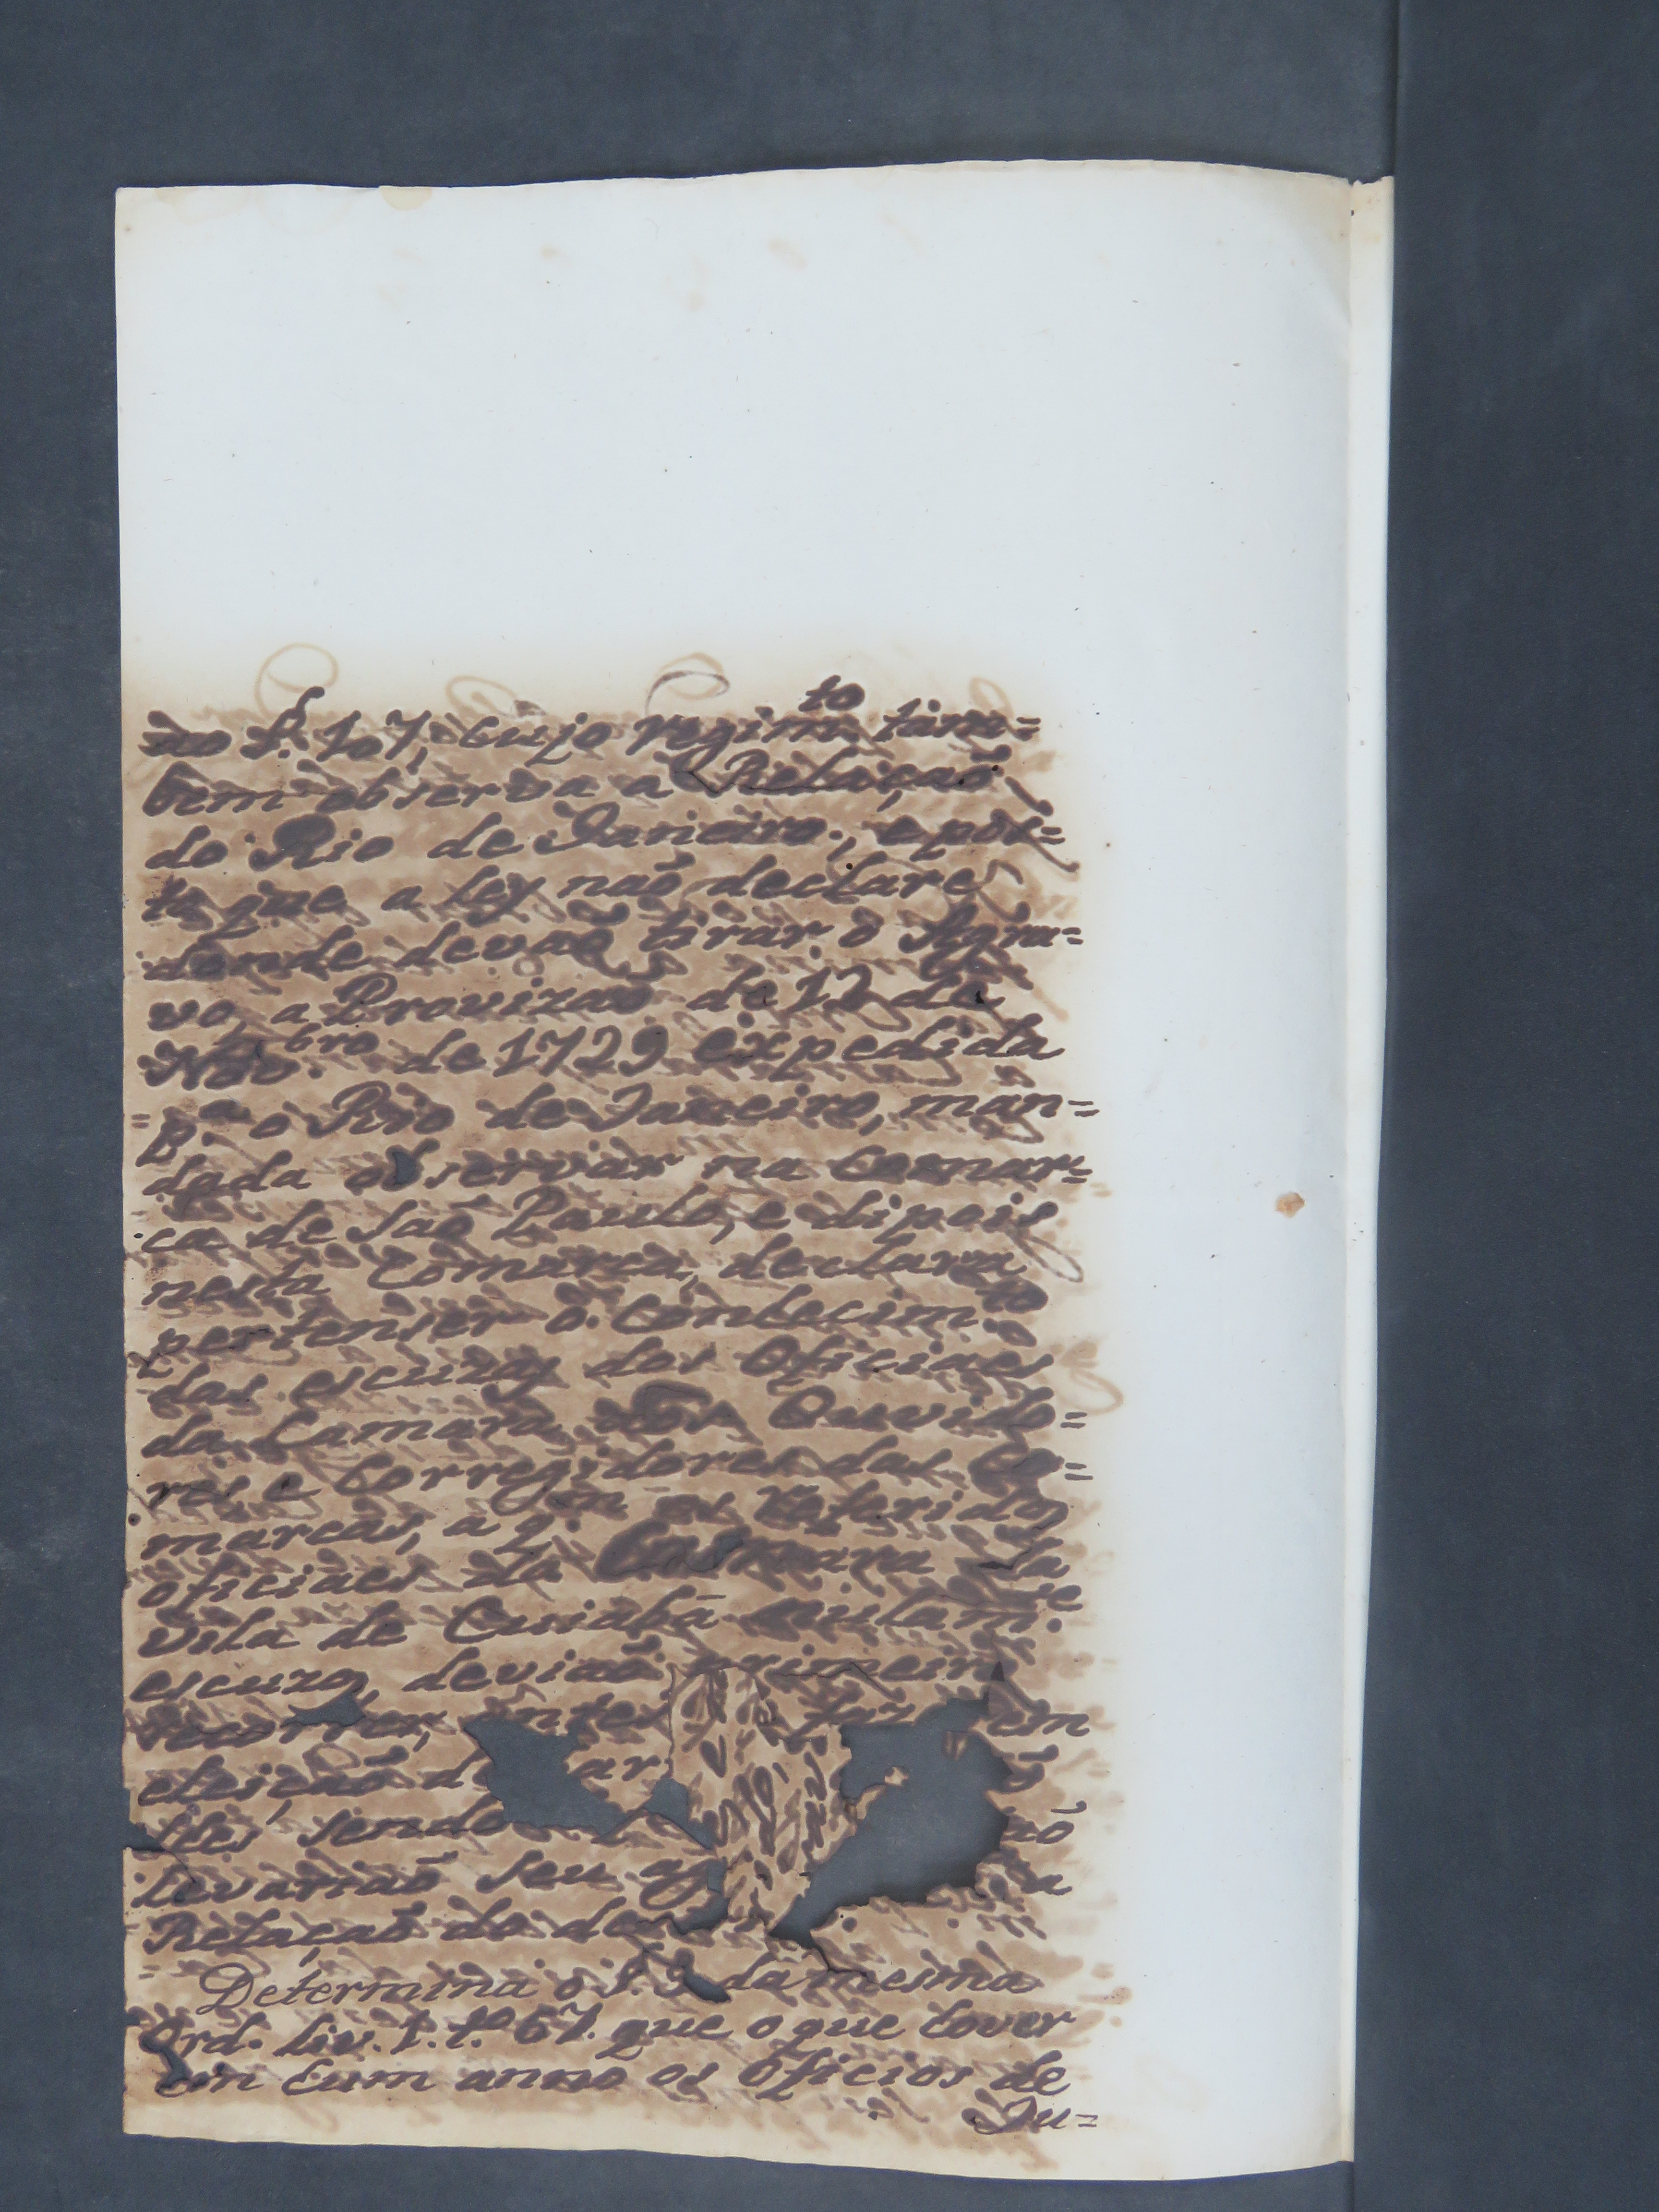 do §. 107, cujo regim.to tam=
bem observa a Relaçaõ
do Rio de Janeiro; e pos=
to que a Ley naõ declare
donde devaõ tirar o Agra=
vo, a Provizaõ de 12 de
Nov.bro de 1729 expedida
=p.a o Rio de Janeiro, man=
dada observar na Comar=
ca de Saõ Paulo, e dipois
nesta Comarca, declara
pertenser o Conhecim.to
das escuzas dos Oficiaes
da Camara aos Ouvido=
res e Corregidores das Co=
marcas, a q.m os referidos
oficiaes da Camara da
Vila de Cuiabá
escuza, deviaõ primeiro
recorrer, antes em
eleiçaõ d
sendo aõ
levariaõ seu ag
Relaçaõ do de
Determina o §. 9 da mesma
Ord. Liv. 1. t.o 67. que o que Cover
em hum anno os Oficios de
Ju=